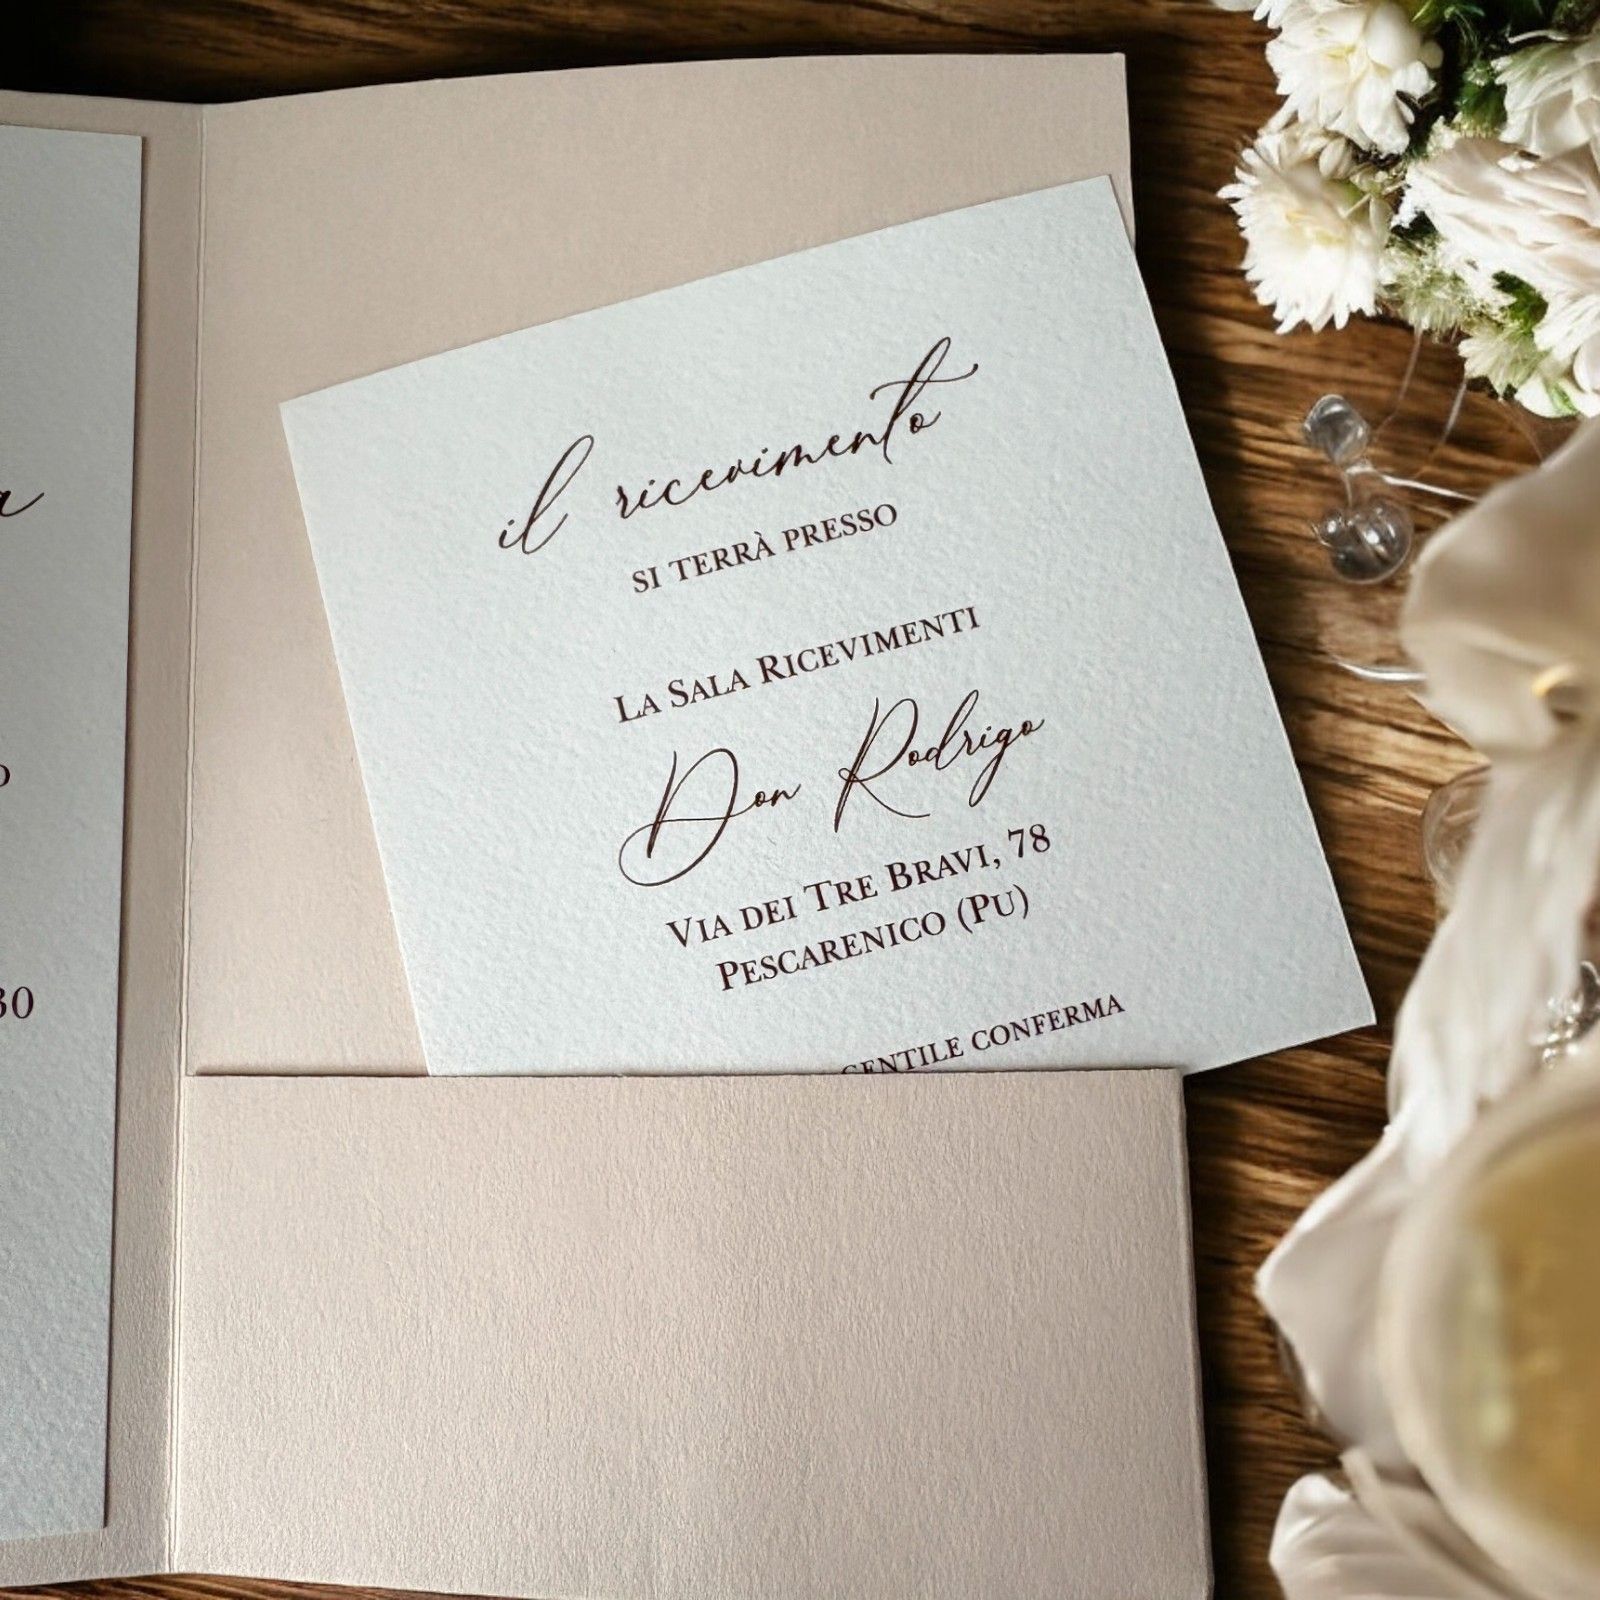 il ricevimento
si terrà presso
La Sala Ricevimenti
Don Rodrigo
Via dei Tre Bravi, 78
Pescarenico (Pu)
gentile conferma
30